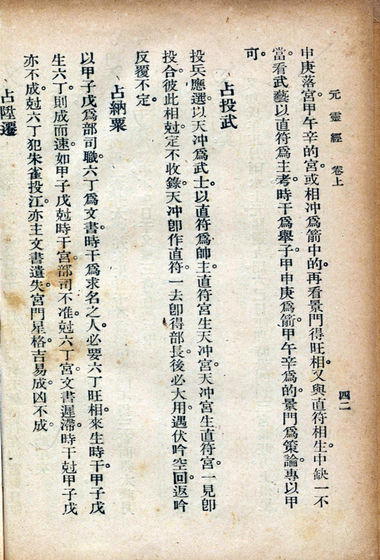 元靈經 卷上 四二
申庚落宮甲午辛的宮。或相冲爲箭中的。再看景門得旺相。又與直符相生。中缺一不
可。
當看武藝以直符爲主考。時干爲舉子。甲申庚爲箭。甲午辛爲的。景門爲策論。專以甲
占投武
投兵應選。以天冲爲武士。以直符爲帥主。直符宮生天冲宮。天冲宮生直符宮。一見卽
投合。彼此相尅。定不收錄。天冲卽作直符。一去卽得部長。後必大用。遇伏吟空回。返吟
反覆不定。
占納粟
以甲子戊爲部司職。六丁爲文書。時干爲求名之人。必要六丁旺相。來生時干。甲子戊
生六丁。則成而速。如甲子戊尅時干宮。部司不准。尅六丁宮。文書遲滯。時干尅甲子戊
亦不成。尅六丁犯朱雀投江。亦主文書遺失。宮門星格。吉易成。凶不成。
占陞遷